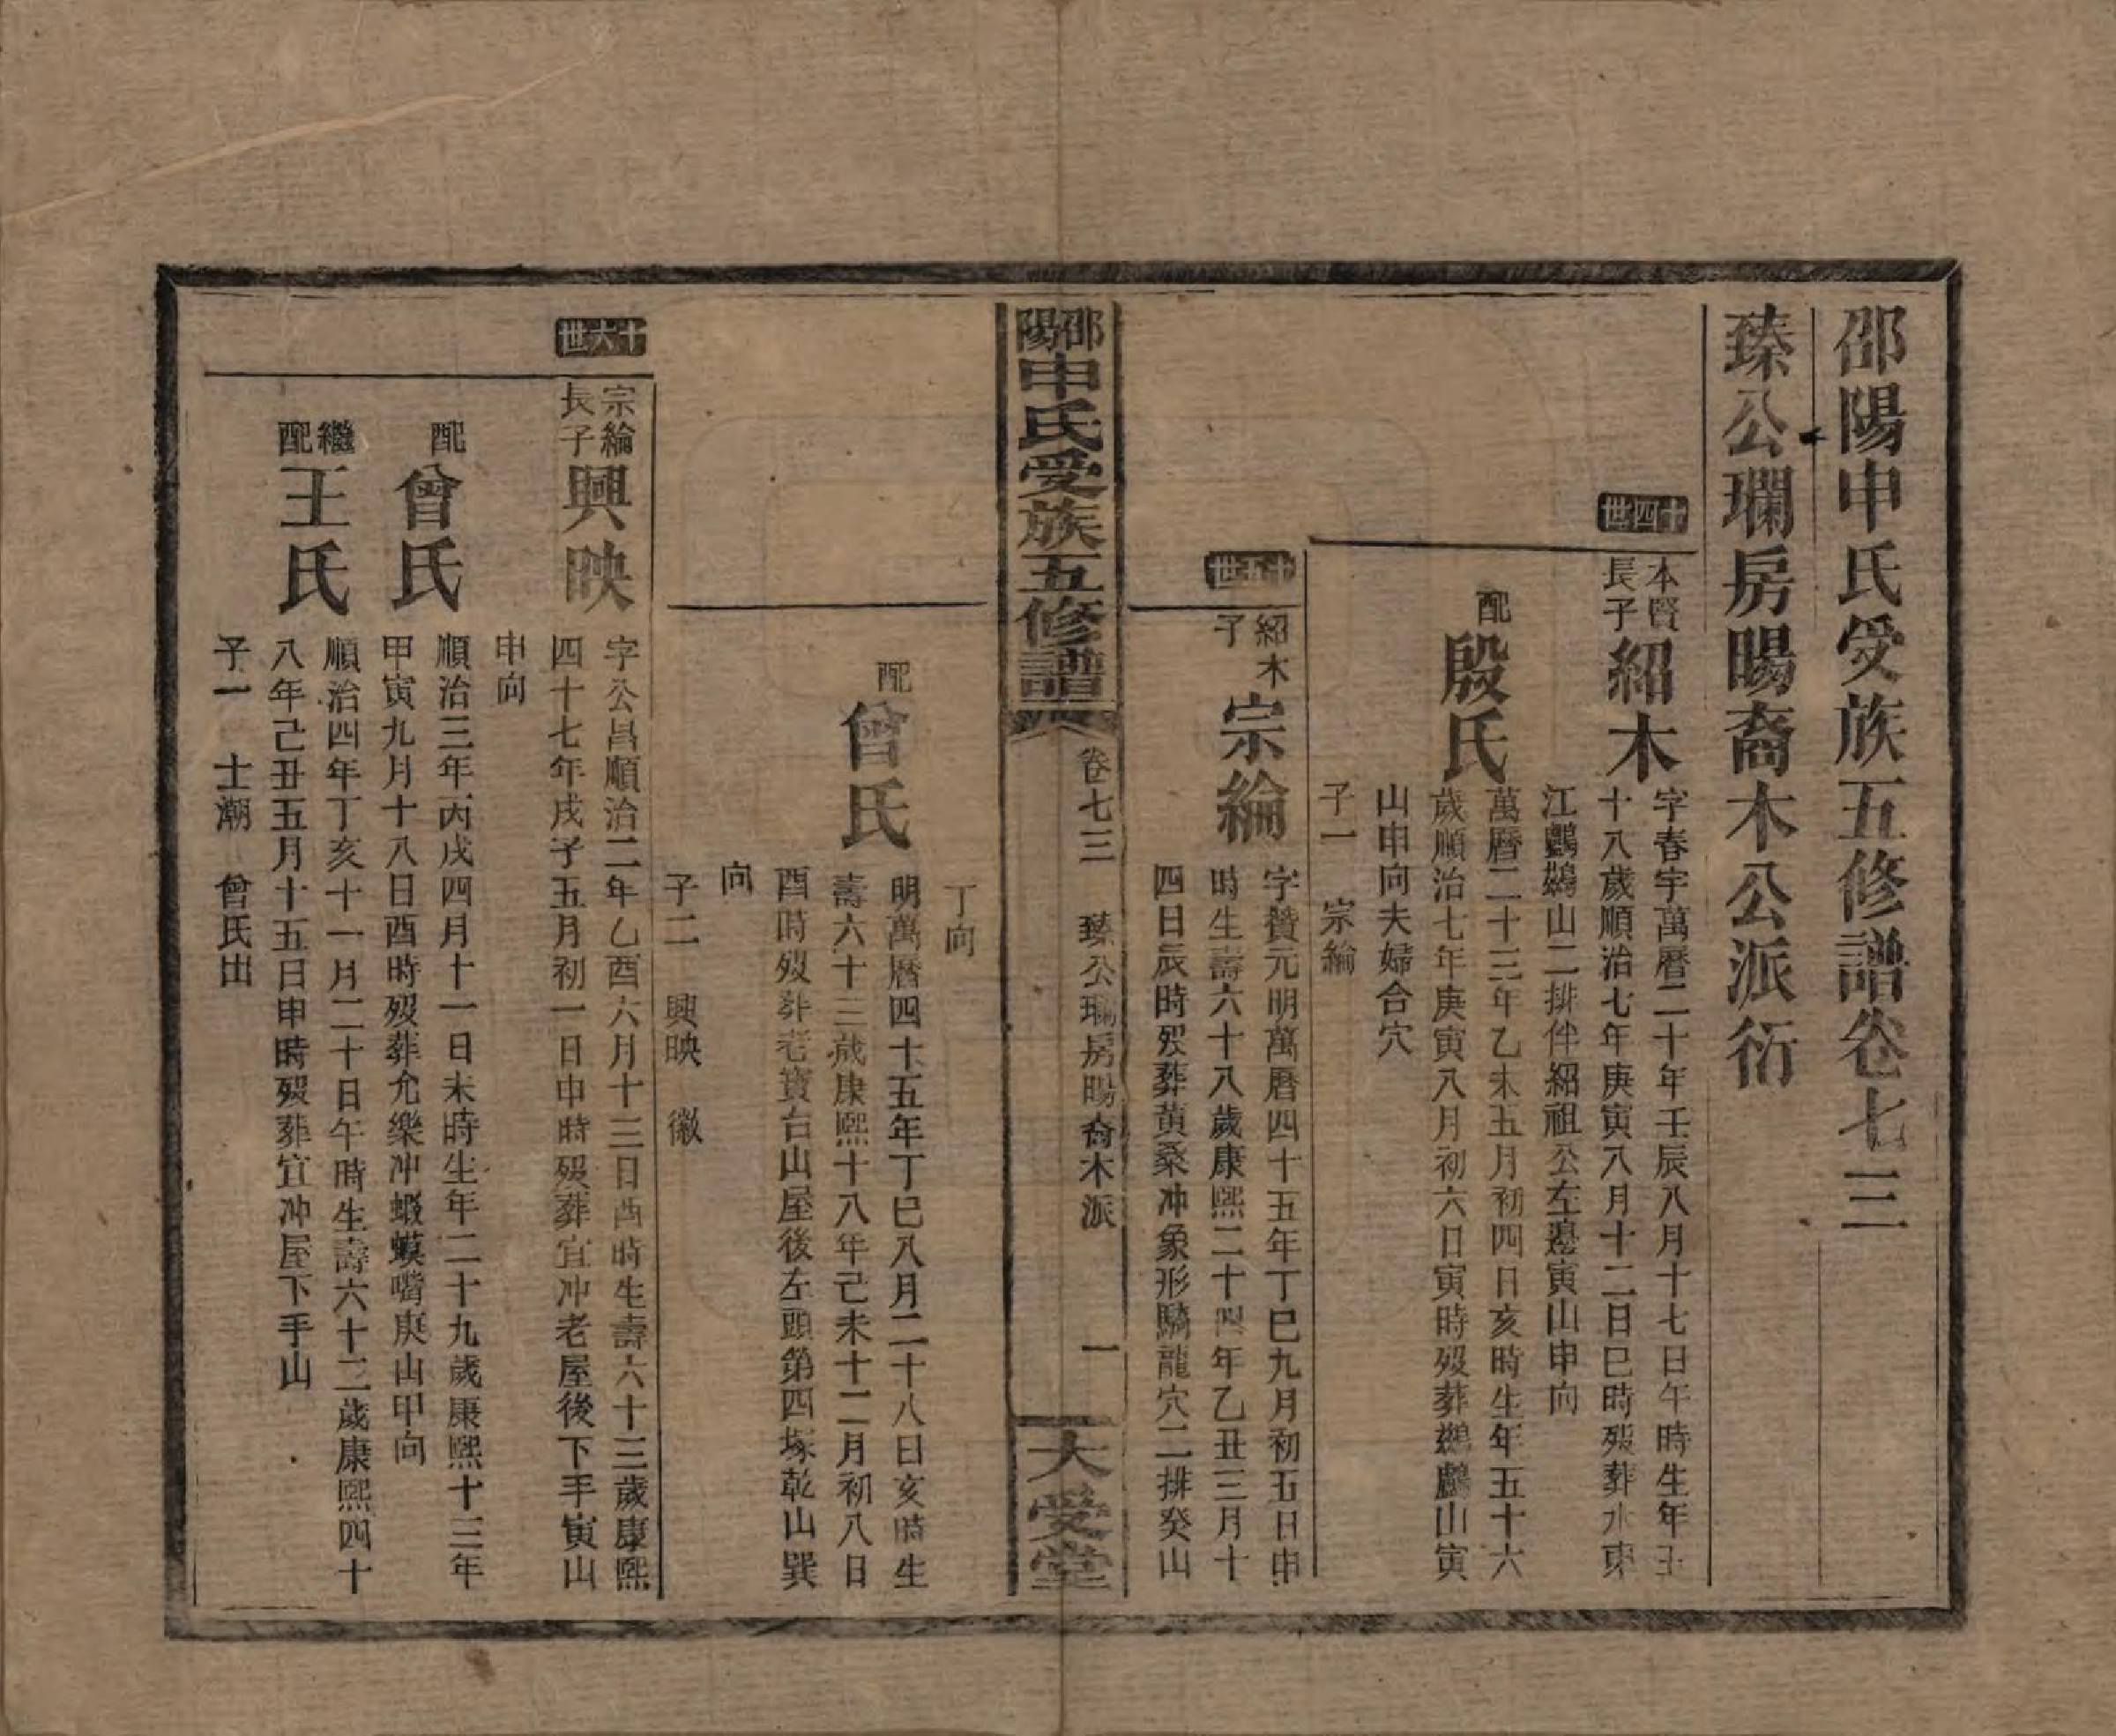 邵陽申氏受族五修譜卷七三
臻公瓓房暘裔木公派衍
十四世
本賢長子
紹木
字春宇萬曆二十年壬辰八月十七日午時生年五
十八歲順治七年庚寅八月十二日巳時歿葬水東
江鸕鷀山二排伴紹祖公左邊寅山申向
配
殷氏
萬曆二十三年乙未五月初四日亥時生年五十六
歲順治七年庚寅八月初六日寅時歿葬鷀鸕山寅
山申向夫婦合穴
子一 宗綸
十五世
紹木子
宗綸
字贊元明萬曆四十五年丁巳九月初五日申
時生壽六十八歲康熙二十四年乙丑三月十
四日辰時歿葬黃桑冲象形騎龍穴二排癸山
邵陽申氏受族五修譜
卷七三 臻公瓓房暘裔木派 一
大受堂
丁向
配
曾氏
明萬曆四十五年丁巳八月二十八日亥時生
壽六十三歲康熙十八年己未十二月初八日
酉時歿葬老寶台山屋後左頭第四塚乾山巽
向
子二 興映 徽
十六世
宗綸長子
興映
字公昌順治二年乙酉六月十三日酉時生壽六十三歲康熙
四十七年戊子五月初一日申時歿葬宜冲老屋後下手寅山
申向
配
曾氏
順治三年丙戌四月十一日未時生年二十九歲康熙十三年
甲寅九月十八日酉時歿葬允樂冲蝦蟆嘴庚山甲向
繼配
王氏
順治四年丁亥十一月二十日午時生壽六十二歲康熙四十
八年己丑五月十五日申時歿葬宜冲屋下手山
子一 士潮 曾氏出